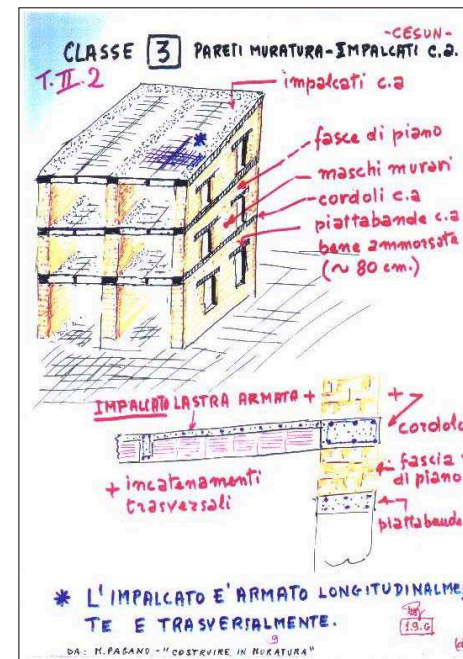 -CESUN-
CLASSE 3 PARETI MURATURA-IMPALCATI c.a.
T.II.2
impalcati c.a
fasce di piano
maschi murari
cordoli c.a
piattabande c.a
bene ammorsate
(~ 80 cm.)
IMPALCATO LASTRA ARMATA +
+
cordolo
+ incatenamenti
trasversali
fascia
di piano
piattabande
* L'IMPALCATO E' ARMATO LONGITUDINALME
TE E TRASVERSALMENTE.
9
1.9.G
DA: M.PAGANO - "COSTRUIRE IN MURATURA"